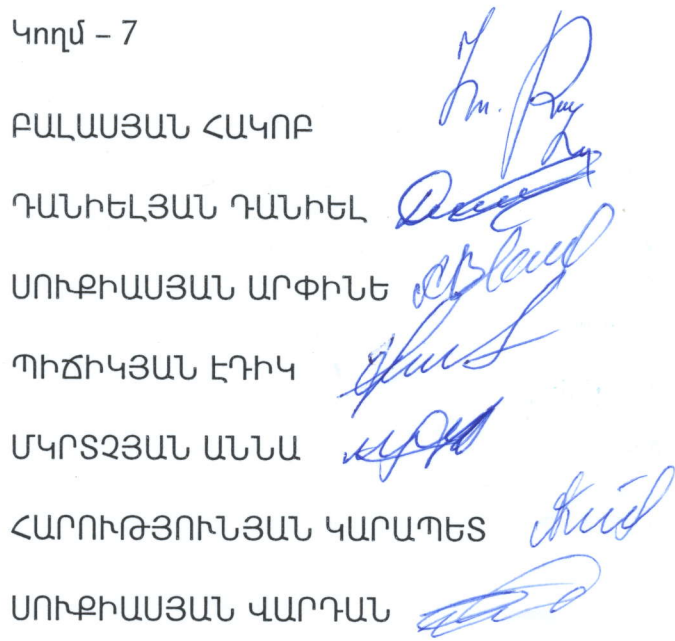 Կողմ – 7
ԲԱԼԱՍՅԱՆ ՀԱԿՈԲ
ԴԱՆԻԵԼՅԱՆ ԴԱՆԻԵԼ
ՍՈՒՔԻԱՍՅԱՆ ԱՐՓԻՆԵ
ՊԻՃԻԿՅԱՆ ԷԴԻԿ
ՄԿՐՏՉՅԱՆ ԱՆՆԱ
ՀԱՐՈՒԹՅՈՒՆՅԱՆ ԿԱՐԱՊԵՏ
ՍՈՒՔԻԱՍՅԱՆ ՎԱՐԴԱՆ